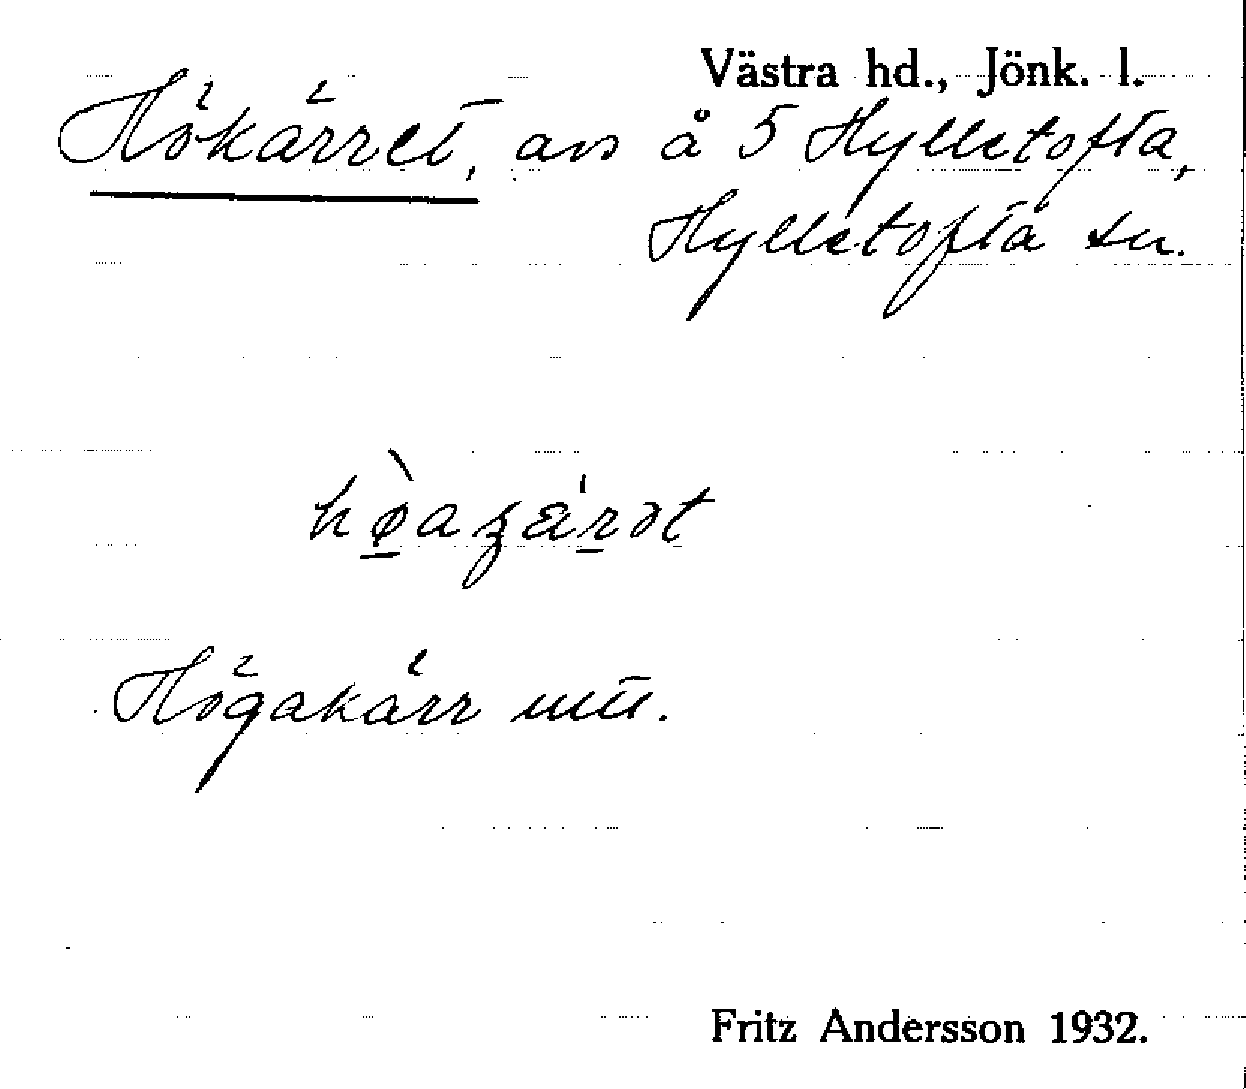 Västra hd., Jönk. l.
Hökärret, avs å 5 Hylletofta,
Hylletofta sn.
Högakärr mtl.
Fritz Andersson 1932.